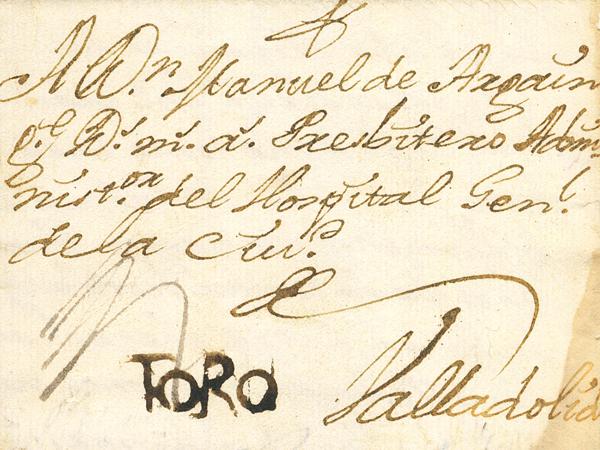 A D.n Manuel de Argain
q.e D.s m.s a.s Presbitero Admi
nist.or del Hospital Gen.l
de la Ciu.d
de
Valladolid
TORO